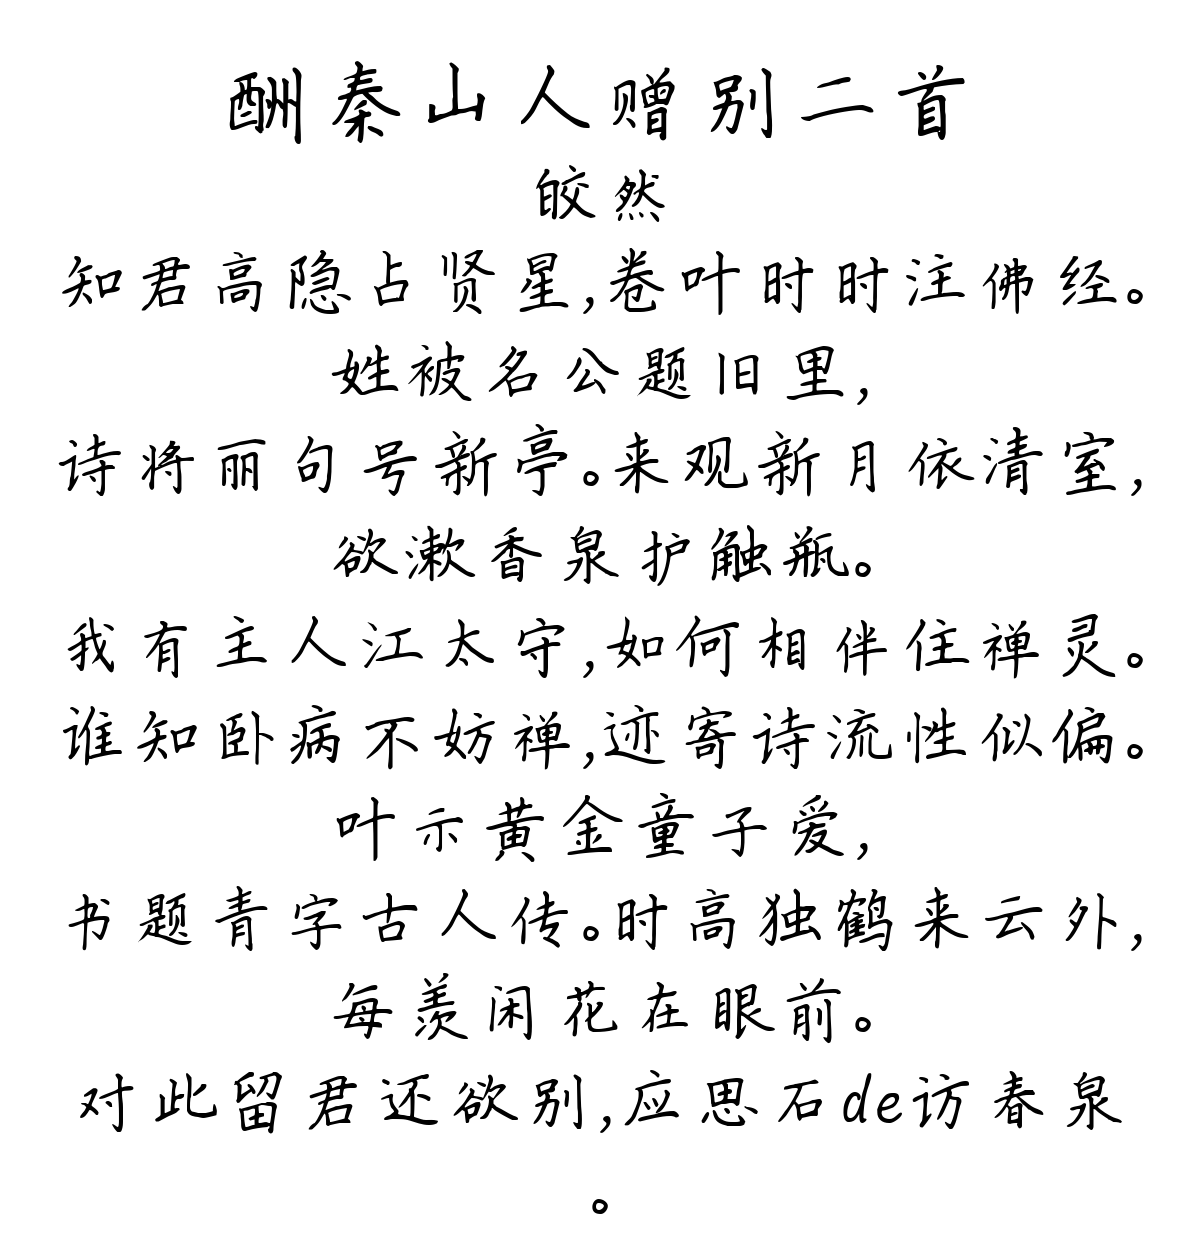 酬秦山人赠别二首
皎然
知君高隐占贤星,卷叶时时注佛经。
姓被名公题旧里,
诗将丽句号新亭。来观新月依清室,
欲漱香泉护触瓶。
我有主人江太守,如何相伴住禅灵。
谁知卧病不妨禅,迹寄诗流性似偏。
叶示黄金童子爱,
书题青字古人传。时高独鹤来云外,
每羡闲花在眼前。
对此留君还欲别,应思石de访春泉
。